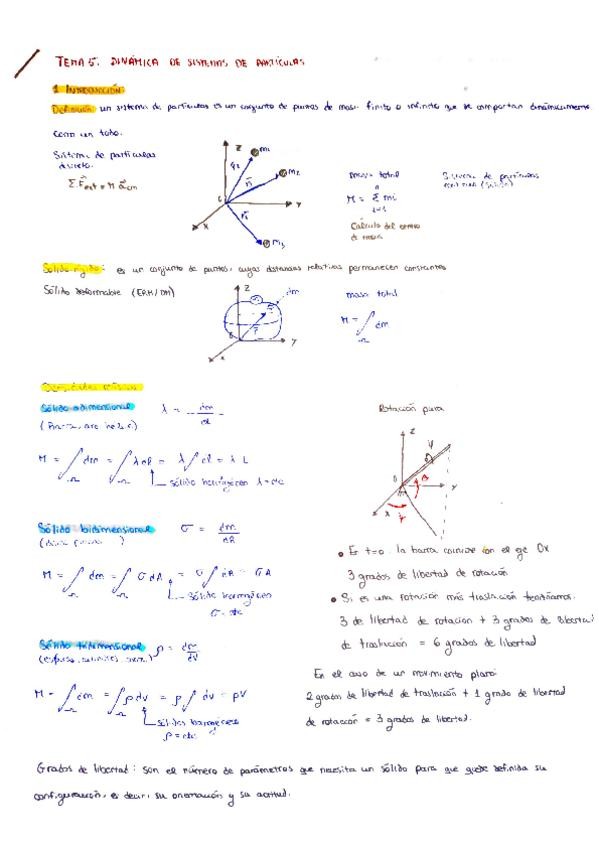 TEMA 5. DINÁMICA DE SISTEMAS DE PARTÍCULAS
1. INTRODUCCIÓN
Definición: un sistema de partículas es un conjunto de puntos de masa finito o infinito que se comportan dinámicamente
como un todo.
Sistema de partículas
discreto.
Σ F⃗ext = M a⃗cm
z
m1
r⃗2
m2
r⃗1
y
x
r⃗3
m3
masa total
M = Σ mi
Cálculo del centro
de masas
Sistema de partículas
Sólido rígido: es un conjunto de puntos, cuyas distancias relativas permanecen constantes
Sólido deformable (ERM/DM)
z
dm
y
x
masa total
M = ∫Ω dm
Sólido unidimensional
λ = dm/dl
M = ∫Ω dm = ∫Ω λ dl = λ ∫ dl = λ L
sólido homogéneo λ = cte
Rotación pura
z
y
x
• En t=0 la barra coincide con el eje Ox
3 grados de libertad de rotación
• Si es una rotación más traslación tendríamos:
3 de libertad de rotación + 3 grados de libertad
de traslación = 6 grados de libertad
Sólido bidimensional
σ = dm/dA
M = ∫Ω dm = ∫Ω σ dA = σ ∫ dA = σ A
Sólido homogéneo
σ = cte
Sólido tridimensional
ρ = dm/dV
M = ∫Ω dm = ∫Ω ρ dV = ρ ∫ dV = ρV
sólidos homogéneos
ρ = cte
En el caso de un movimiento plano:
2 grados de libertad de traslación + 1 grado de libertad
de rotación = 3 grados de libertad.
Grados de libertad: son el número de parámetros que necesita un sólido para que quede definida su
configuración, es decir, su orientación y su actitud.